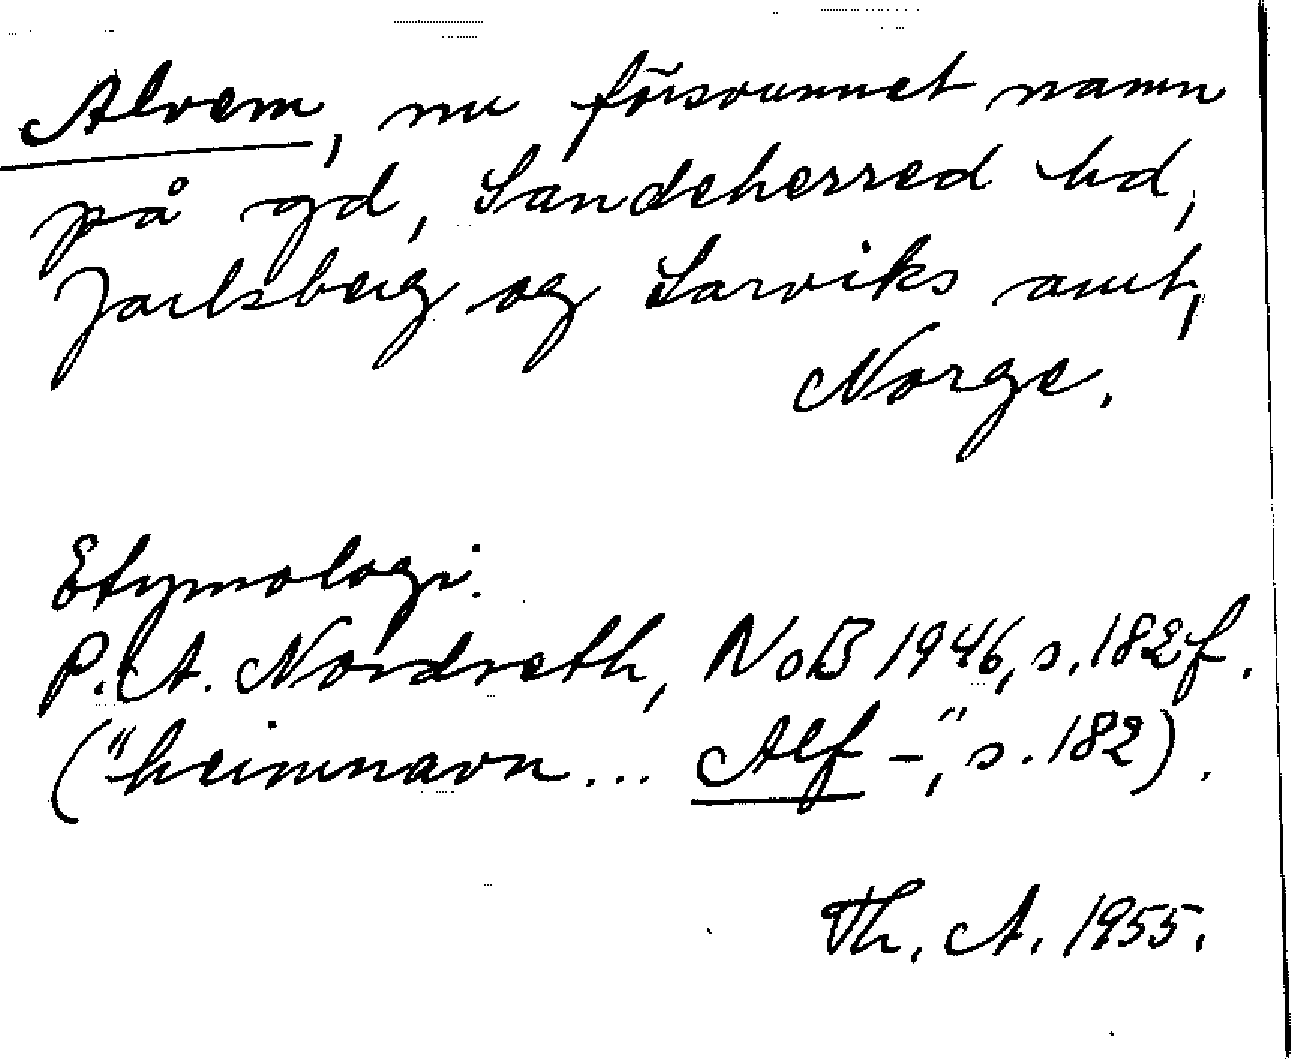 Alvem, nu försvunnet namn
på gd, Sandeherred hd,
Jarlsberg og Larviks amt,
Norge.
Etymologi.
P. A. Nordseth, NoB 1946, s. 182 f.
("heimnavn... Alf-", s. 182).
Th. A. 1955.